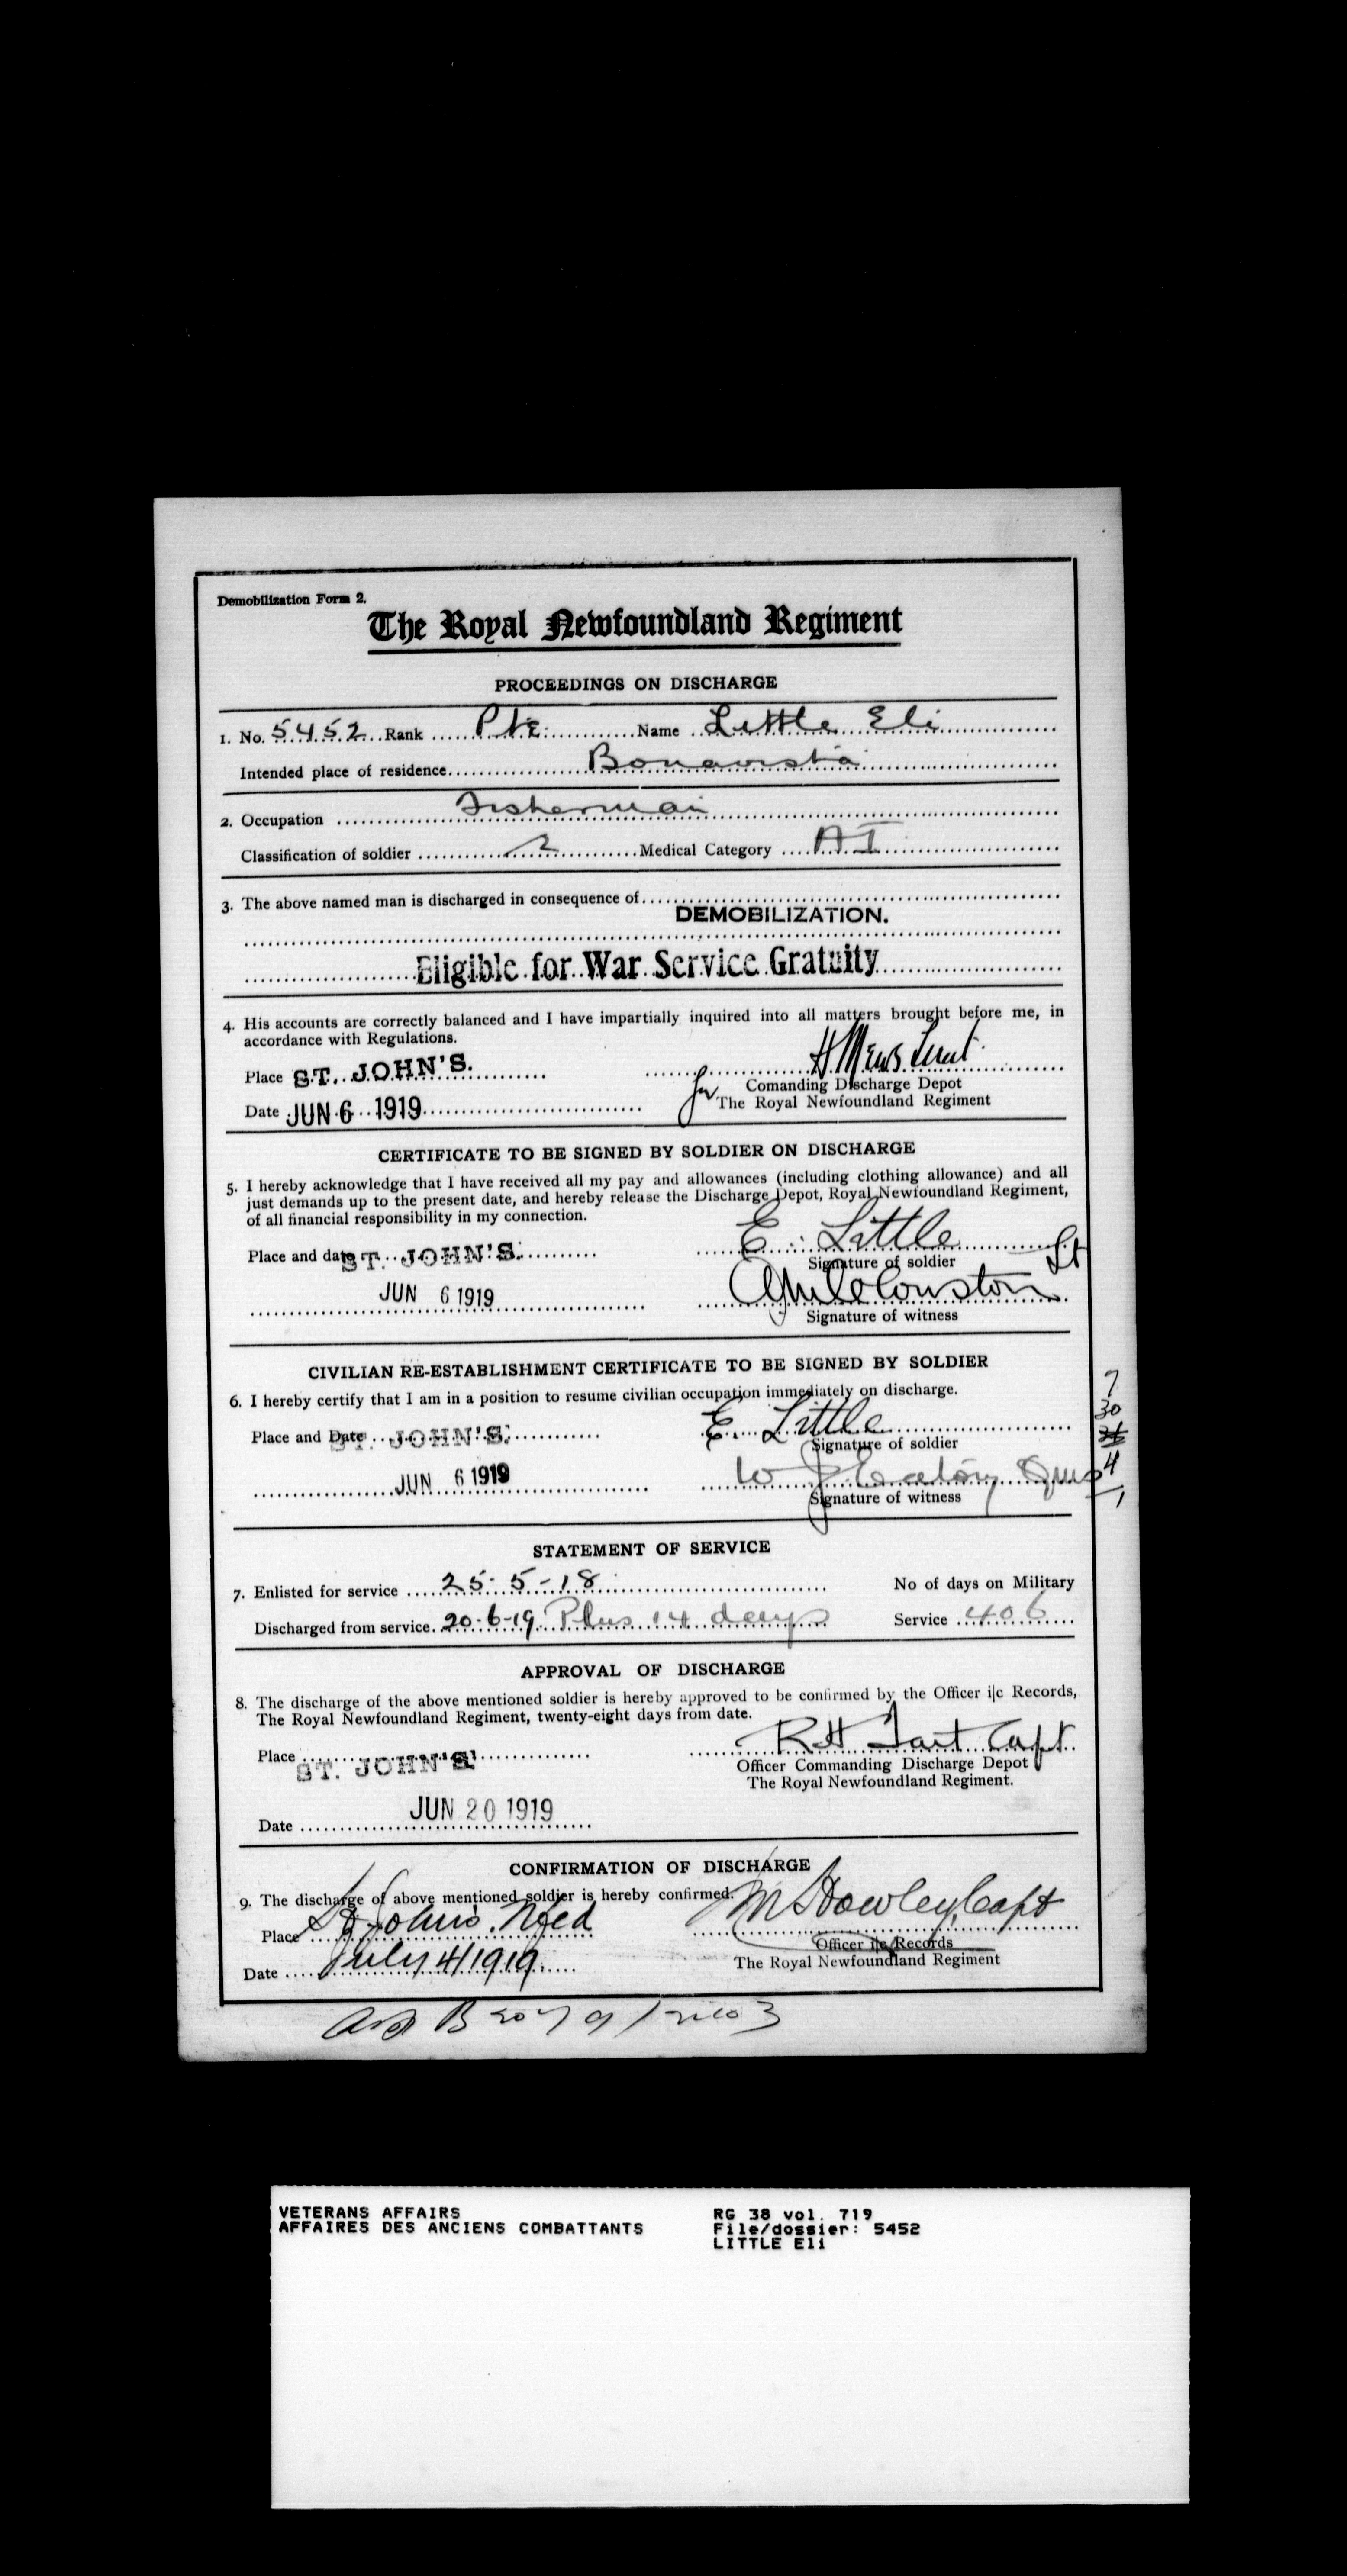 Demobilization Form 2.
The Royal Newfoundland Regiment
PROCEEDINGS ON DISCHARGE
1. No. 5452 Rank Pte Name Little Eli
Intended place of residence Bonavista
2. Occupation Fisherman
Classification of soldier 2 Medical Category A I
3. The above named man is discharged in consequence of
DEMOBILIZATION.
Eligible for War Service Gratuity
4. His accounts are correctly balanced and I have impartially inquired into all matters brought before me, in
accordance with Regulations.
Place ST. JOHN'S. H Mews Lieut
for Comanding Discharge Depot
Date JUN 6 1919 The Royal Newfoundland Regiment
CERTIFICATE TO BE SIGNED BY SOLDIER ON DISCHARGE
5. I hereby acknowledge that I have received all my pay and allowances (including clothing allowance) and all
just demands up to the present date, and hereby release the Discharge Depot, Royal Newfoundland Regiment,
of all financial responsibility in my connection.
Place and date ST. JOHN'S. E. Little
Signature of soldier
JUN 6 1919 Lt
Signature of witness
CIVILIAN RE-ESTABLISHMENT CERTIFICATE TO BE SIGNED BY SOLDIER
6. I hereby certify that I am in a position to resume civilian occupation immediately on discharge.
7
30
4
1
Place and Date ST. JOHN'S. E. Little
Signature of soldier
JUN 6 1919 W J
Signature of witness
STATEMENT OF SERVICE
7. Enlisted for service 25-5-18 No of days on Military
Discharged from service 20-6-19 Plus 14 days Service 406
APPROVAL OF DISCHARGE
8. The discharge of the above mentioned soldier is hereby approved to be confirmed by the Officer i|c Records,
The Royal Newfoundland Regiment, twenty-eight days from date.
Place ST. JOHN'S. R H Tait Capt.
Officer Commanding Discharge Depot
The Royal Newfoundland Regiment.
Date JUN 20 1919
CONFIRMATION OF DISCHARGE
9. The discharge of above mentioned soldier is hereby confirmed.
Place St John's. Nfld M S Howley Capt
Officer i|c Records
Date July 4/1919 The Royal Newfoundland Regiment
VETERANS AFFAIRS RG 38 vol. 719
AFFAIRES DES ANCIENS COMBATTANTS File/dossier: 5452
LITTLE Eli